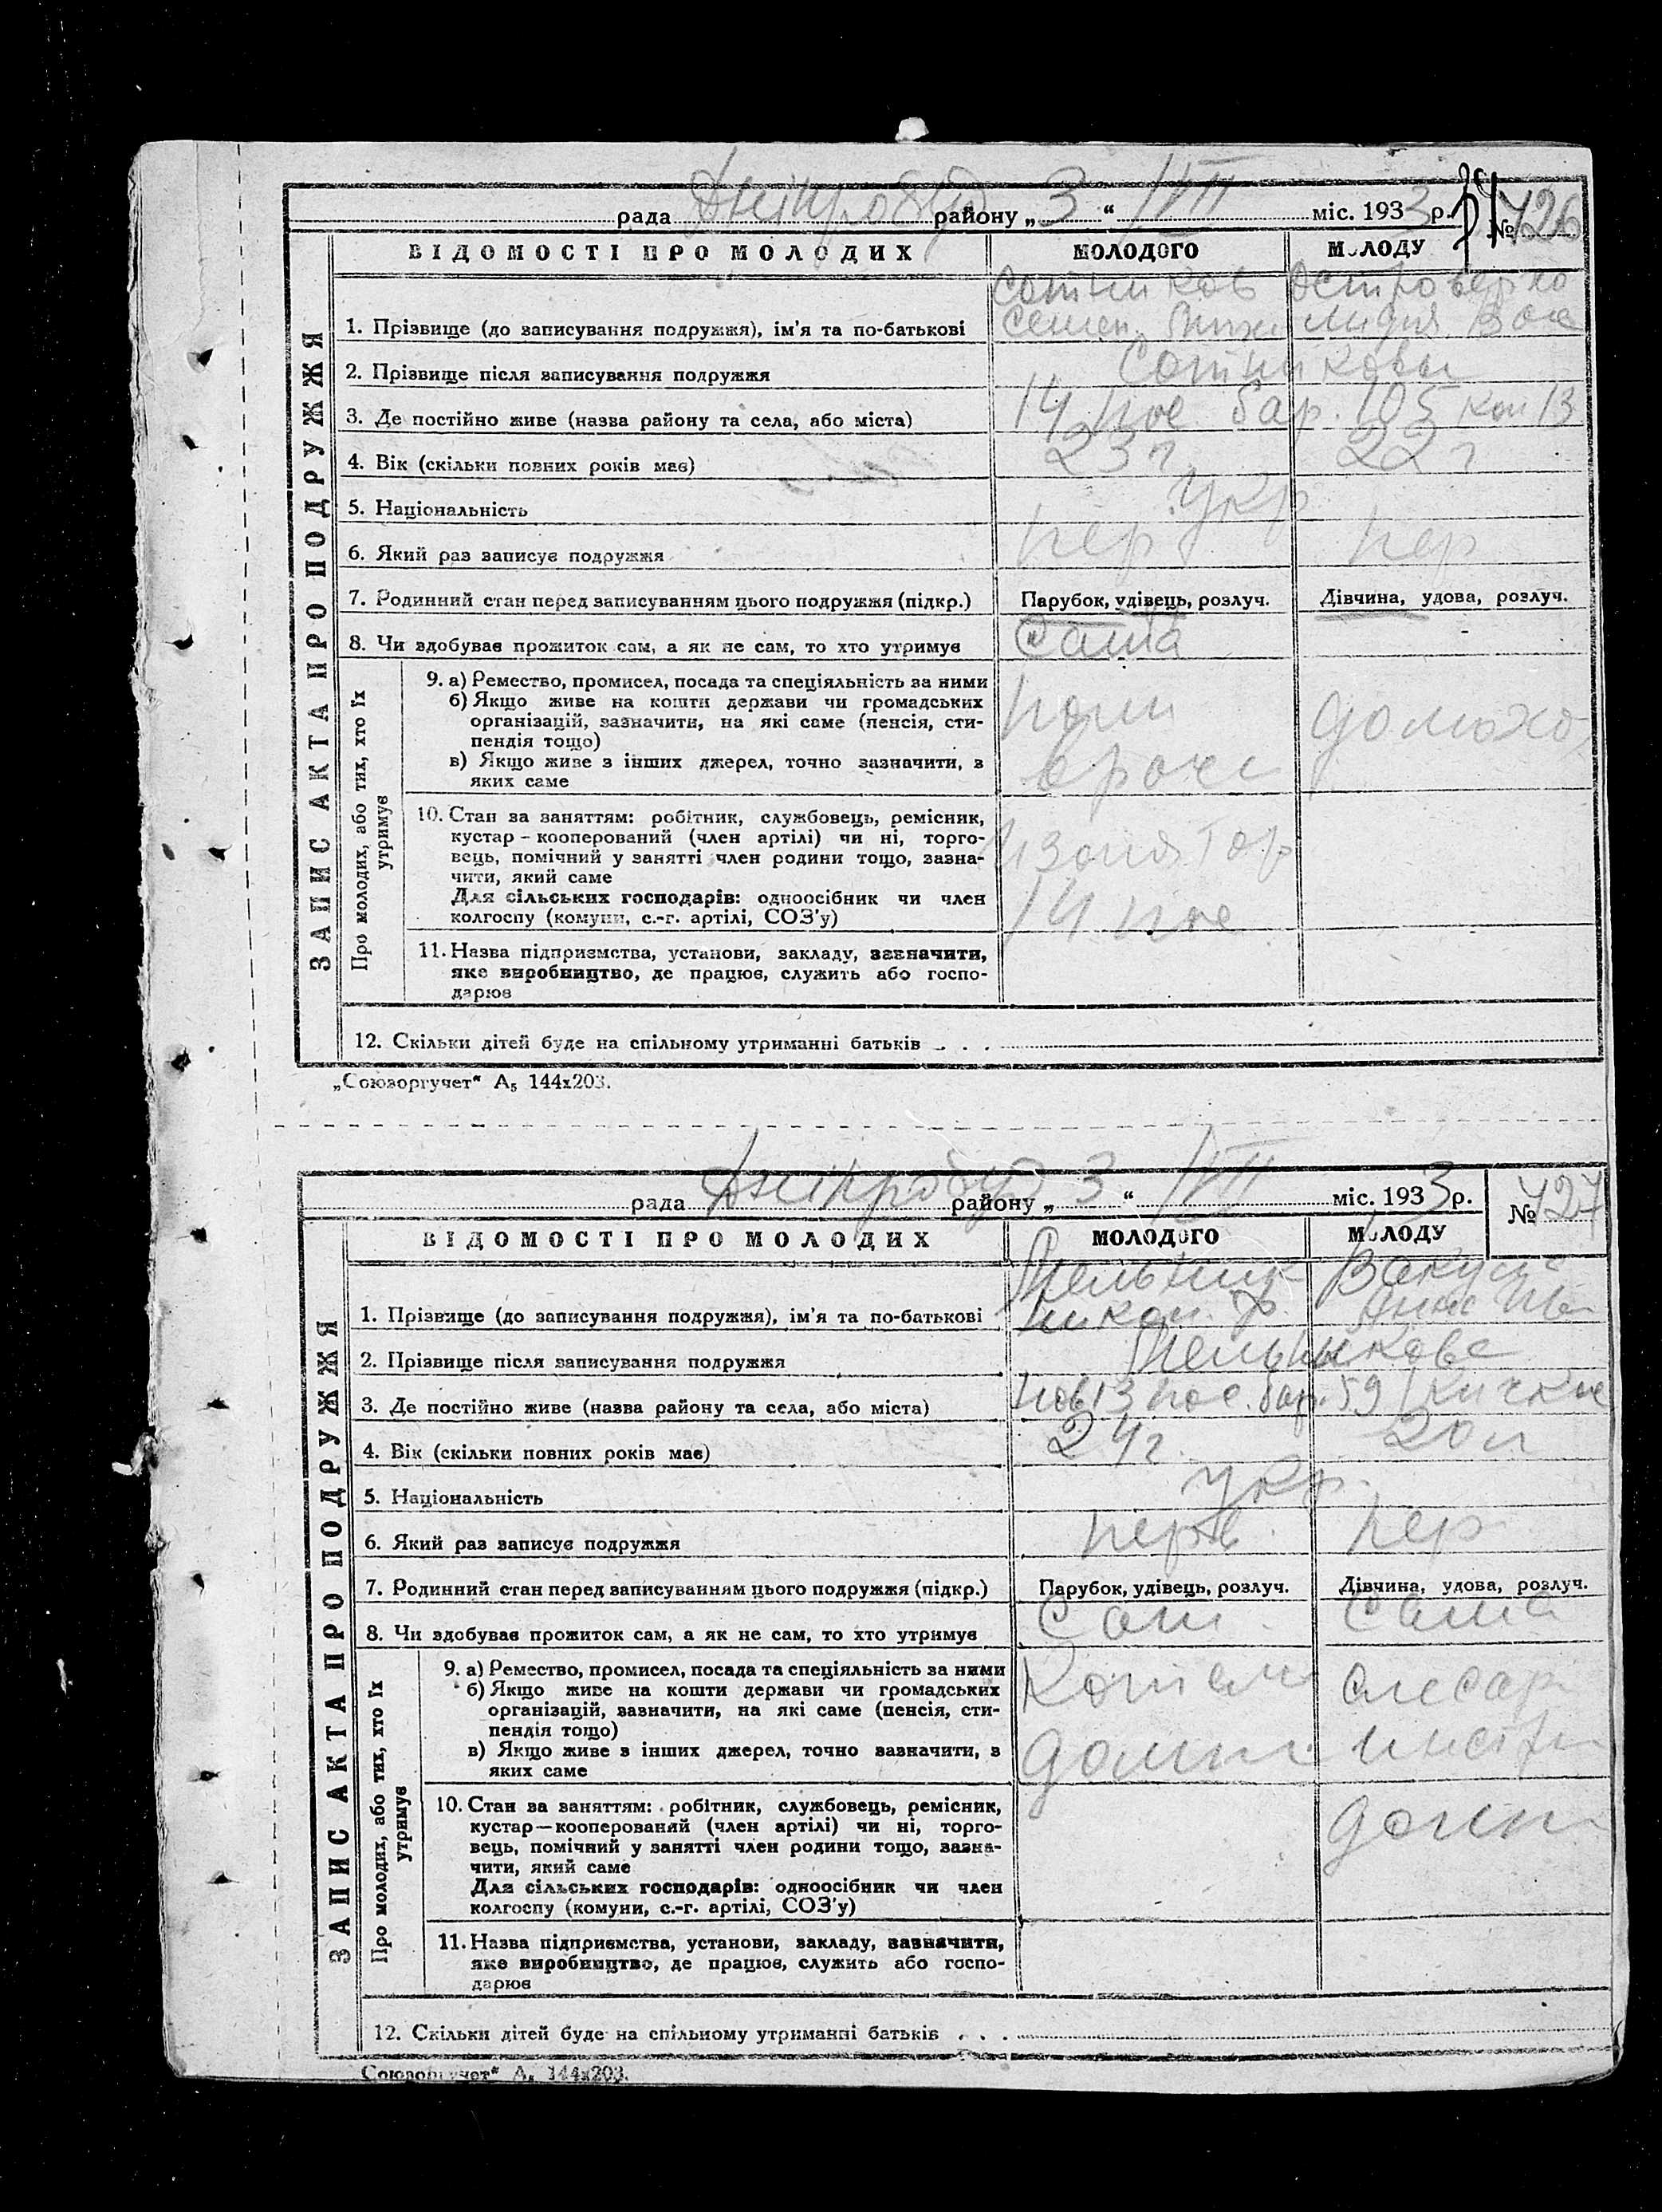 рада Дніпробуд району „ 3 “ /VII міс. 1933 р. № 726
ВІДОМОСТІ ПРО МОЛОДИХ МОЛОДОГО МОЛОДУ
Сотников
1. Прізвище (до записування подружжя), ім'я та по-батькові Семен Лидия
2. Прізвище після записування подружжя Сотниковы
3. Де постійно живе (назва району та села, або міста) 14 пос бар. 105 ком 13
4. Вік (скільки повних років має) 23 г. 22 г
5. Національність Укр
6. Який раз записує подружжя пер пер
7. Родинний стан перед записуванням цього подружжя (підкр.) Парубок, удівець, розлуч. Дівчина, удова, розлуч.
8. Чи здобуває прожиток сам, а як не сам, то хто утримує
ЗАПИС АКТА ПРО ПОДРУЖЖЯ
Про молодих, або тих, хто їх
утримує
9. а) Ремество, промисел, посада та спеціяльність за ними
б) Якщо живе на кошти держави чи громадських
організацій, зазначити, на які саме (пенсія, сти-
пендія тощо)
в) Якщо живе з інших джерел, точно зазначити, з
яких саме
домохо
10. Стан за заняттям: робітник, службовець, ремісник,
кустар – кооперований (член артілі) чи ні, торго-
вець, помічний у занятті член родини тощо, зазна-
чити, який саме
Для сільських господарів: одноосібник чи член
колгоспу (комуни, с.-г. артілі, СОЗ'у)
14 пос
11. Назва підприємства, установи, закладу, зазначити,
яке виробництво, де працює, служить або госпо-
дарює
12. Скільки дітей буде на спільному утриманні батьків . . .
„Союзоргучет“ А₅ 144х203.
рада Дніпробуд району „ 3 “ /VII міс. 1933 р. № 727
ВІДОМОСТІ ПРО МОЛОДИХ МОЛОДОГО МОЛОДУ
Мельник
1. Прізвище (до записування подружжя), ім'я та по-батькові Никол. Анна
2. Прізвище після записування подружжя
3. Де постійно живе (назва району та села, або міста) 13 пос. бар. 59 Кичкас
4. Вік (скільки повних років має) 24 г. 20 л
5. Національність Укр.
6. Який раз записує подружжя перв. пер
7. Родинний стан перед записуванням цього подружжя (підкр.) Парубок, удівець, розлуч. Дівчина, удова, розлуч.
8. Чи здобуває прожиток сам, а як не сам, то хто утримує Сам. Сама
ЗАПИС АКТА ПРО ПОДРУЖЖЯ
Про молодих, або тих, хто їх
утримує
9. а) Ремество, промисел, посада та спеціяльність за ними
б) Якщо живе на кошти держави чи громадських
організацій, зазначити, на які саме (пенсія, сти-
пендія тощо)
в) Якщо живе з інших джерел, точно зазначити, з
яких саме
слесар
10. Стан за заняттям: робітник, службовець, ремісник,
кустар—кооперований (член артілі) чи ні, торго-
вець, помічний у занятті член родини тощо, зазна-
чити, який саме
Для сільських господарів: одноосібник чи член
колгоспу (комуни, с.-г. артілі, СОЗ'у)
11. Назва підприємства, установи, закладу, зазначити,
яке виробництво, де працює, служить або госпо-
дарює
12. Скільки дітей буде на спільному утриманні батьків . . .
Союзоргучет“ А₅ 144х203.